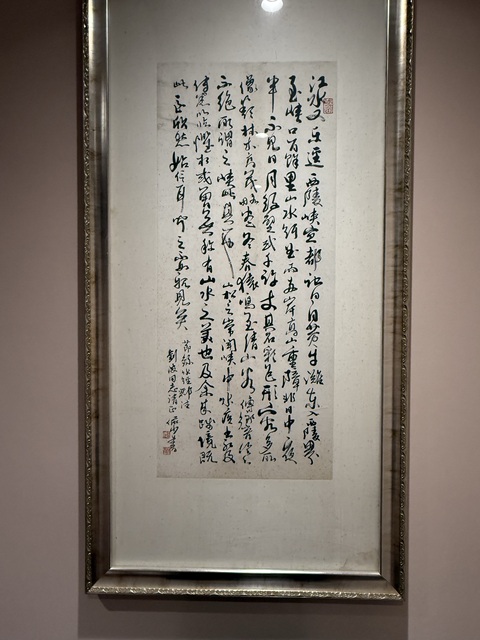 江水又东逕西陵峡宜都记曰自黄牛滩东入西陵界
至峡口百餘里山水纡曲而两岸高山重障非日中夜
半不見日月绝壁或千许丈其石彩色形容多所
像類林木高茂略尽冬春猿鸣至清山谷傳响泠泠
不绝所谓三峡此其一也山松言常闻峡中水疾书及
傳悉以临懼相戒曾无称有山水之美也及余来践境既
至欣然始信耳闻之不如親見矣
節錄水经注
同志清正